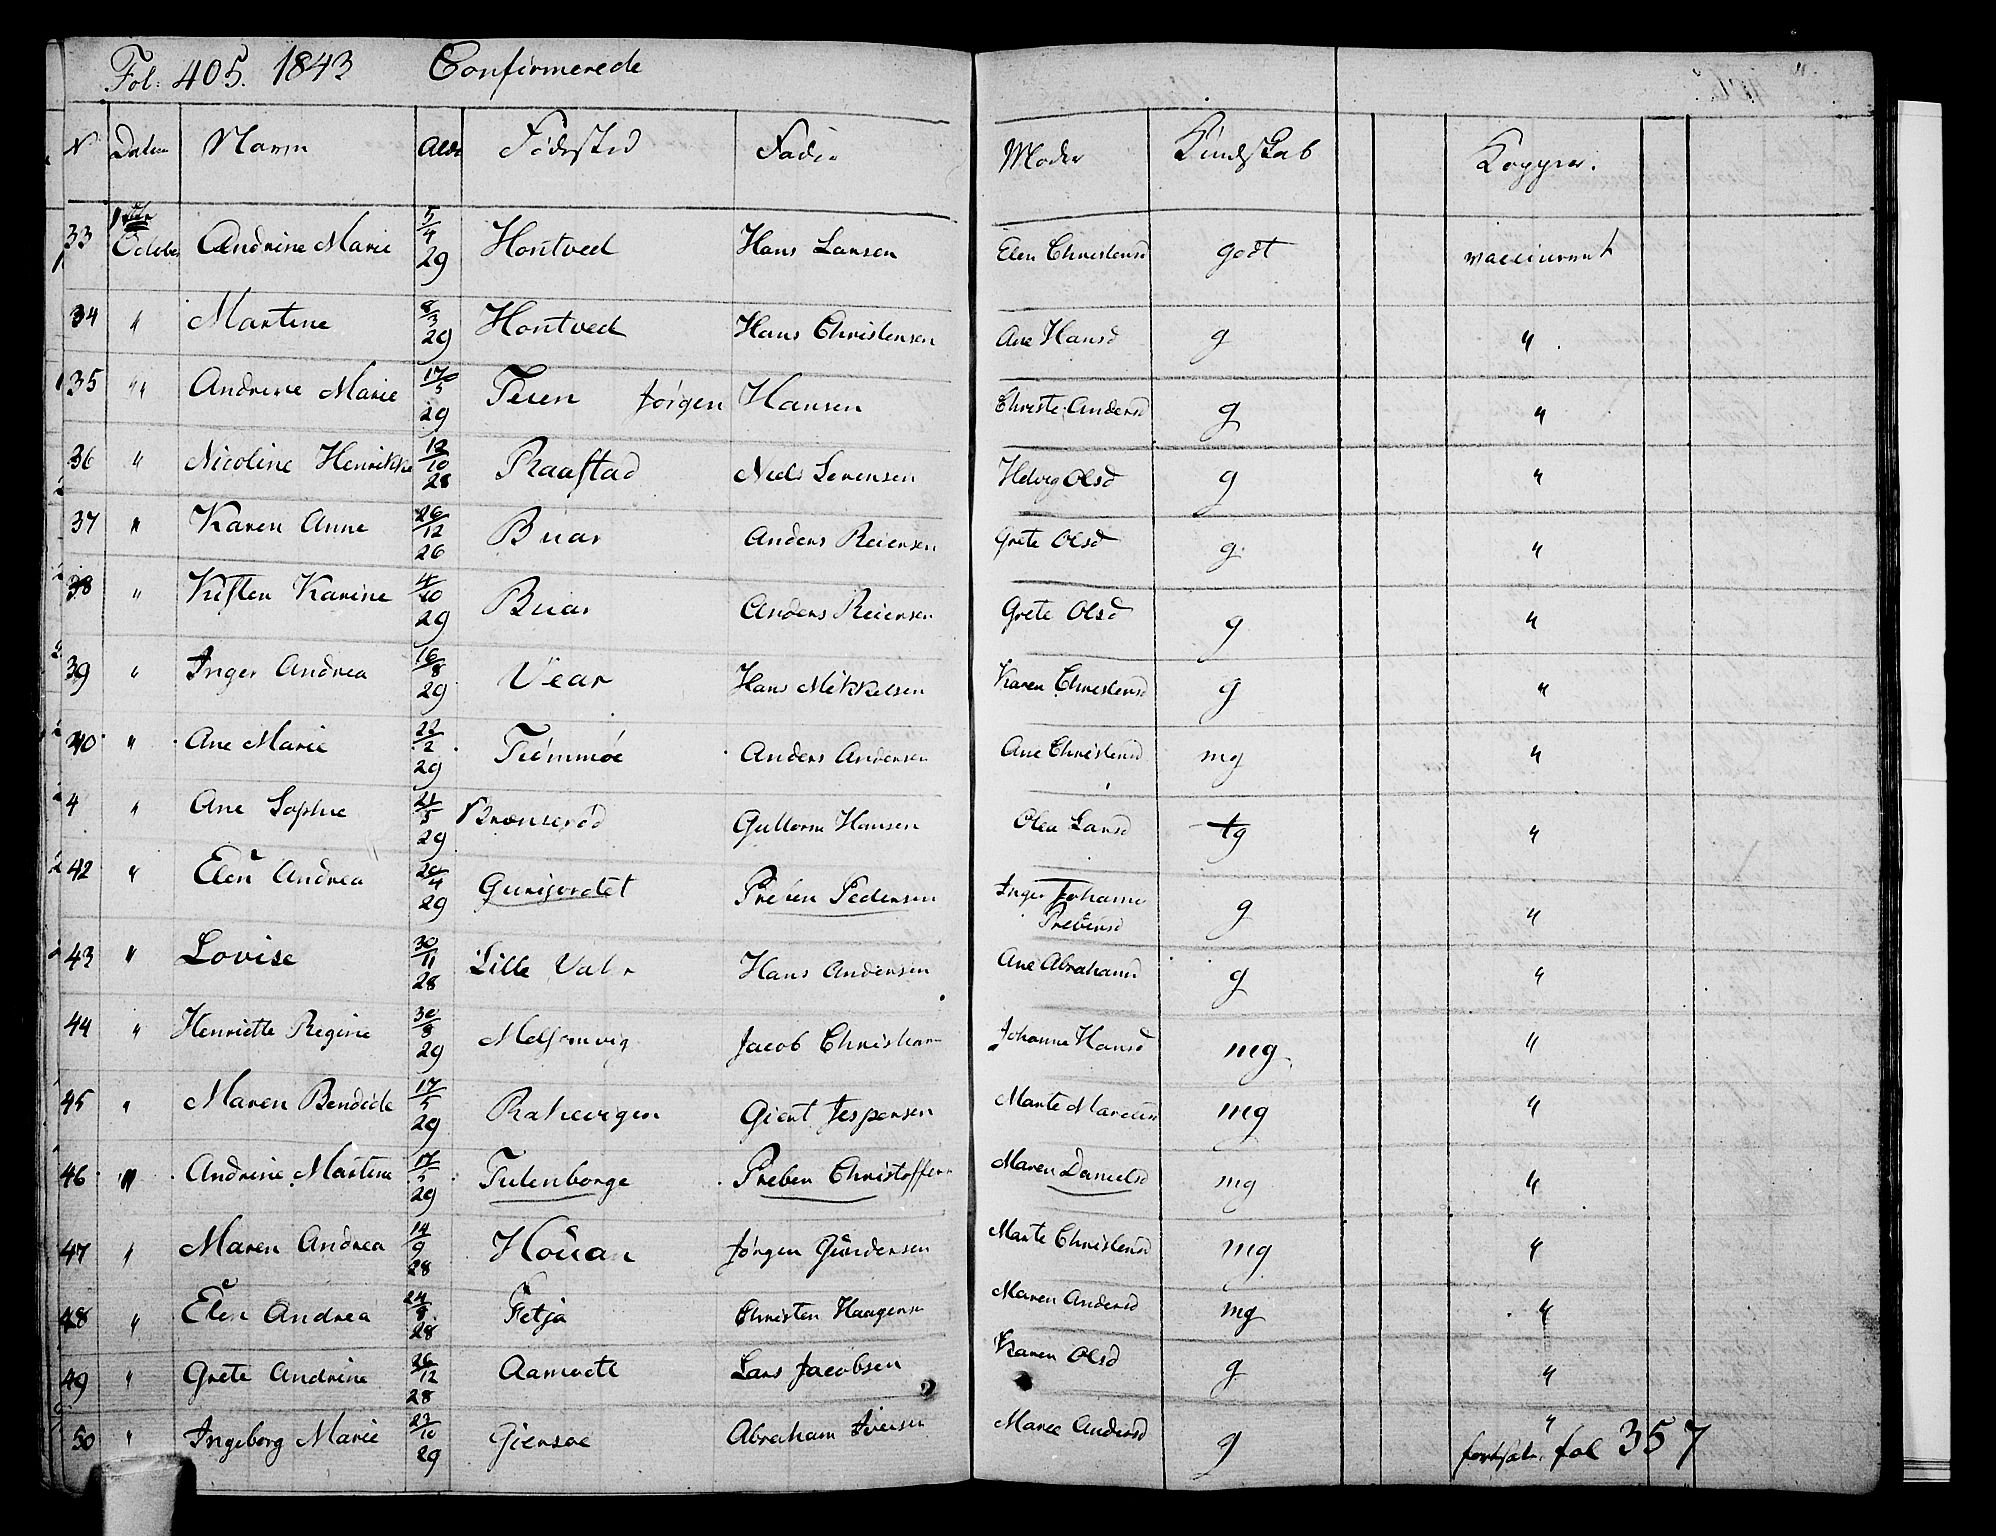 Fol: 405. 1843 Confirmerede
N Datum Navn Alder Fødested Fader Moder Kundskab Kopper.
33 1 October Andrine Marie 5/4 29 Hontved Hans Larsen Elen Christensd godt vaccineret
34 " Martine 8/3 29 Hontved Hans Christensen Ane Hansd g "
35 " Andrine Marie 17/5 29 Teien Jørgen Hansen Christe Andersd g "
36 " Nicoline Henrikke 12/10 28 Raastad Niels Sørensen Helvig Olsd g "
37 " Karen Anne 26/12 26 Buar Anders Reiersen Grete Olsd g "
38 " Kisten Karine 4/10 29 Buar Anders Reiersen Grete Olsd g "
39 " Inger Andrea 16/8 29 Vear Hans Mikkelsen Karen Christensd g "
40 " Ane Marie 22/2 29 Tiømmøe Anders Andersen Ane Christensd mg "
4 " Ane Sophie 21/5 29 Brænserød Guttorm Hansen Olea Larsd tg "
42 " Elen Andrea 20/4 29 Gurisrødet Preben Pedersen Inger Johanne
Prebensd g "
43 " Lovise 30/11 28 Lille Valø Hans Andersen Ane Abrahamsd g "
44 " Henriette Regine 30/8 29 Melsomvig Jacob Christians Johanne Hansd mg "
45 " Maren Bendicte 17/5 29 Rakevigen Giert Jespersen Marte Marcusd mg "
46 " Andrine Martine 17/5 29 Tulenborge Preben Christoffers Maren Danielsd mg "
47 " Maren Andrea 14/9 28 Houan Jørgen Gundersen Marte Christensd mg "
48 " Elen Andrea 24/8 28 Fetja Christen Haagens Maren Andersd mg "
49 " Grete Andrine 26/12 28 Aamodt Lars Jacobsen Karen Olsd g "
50 " Ingeborg Marie 23/10 29 Giersøe Abraham Iversen Maree Andersd g "
fortsat. fol 357